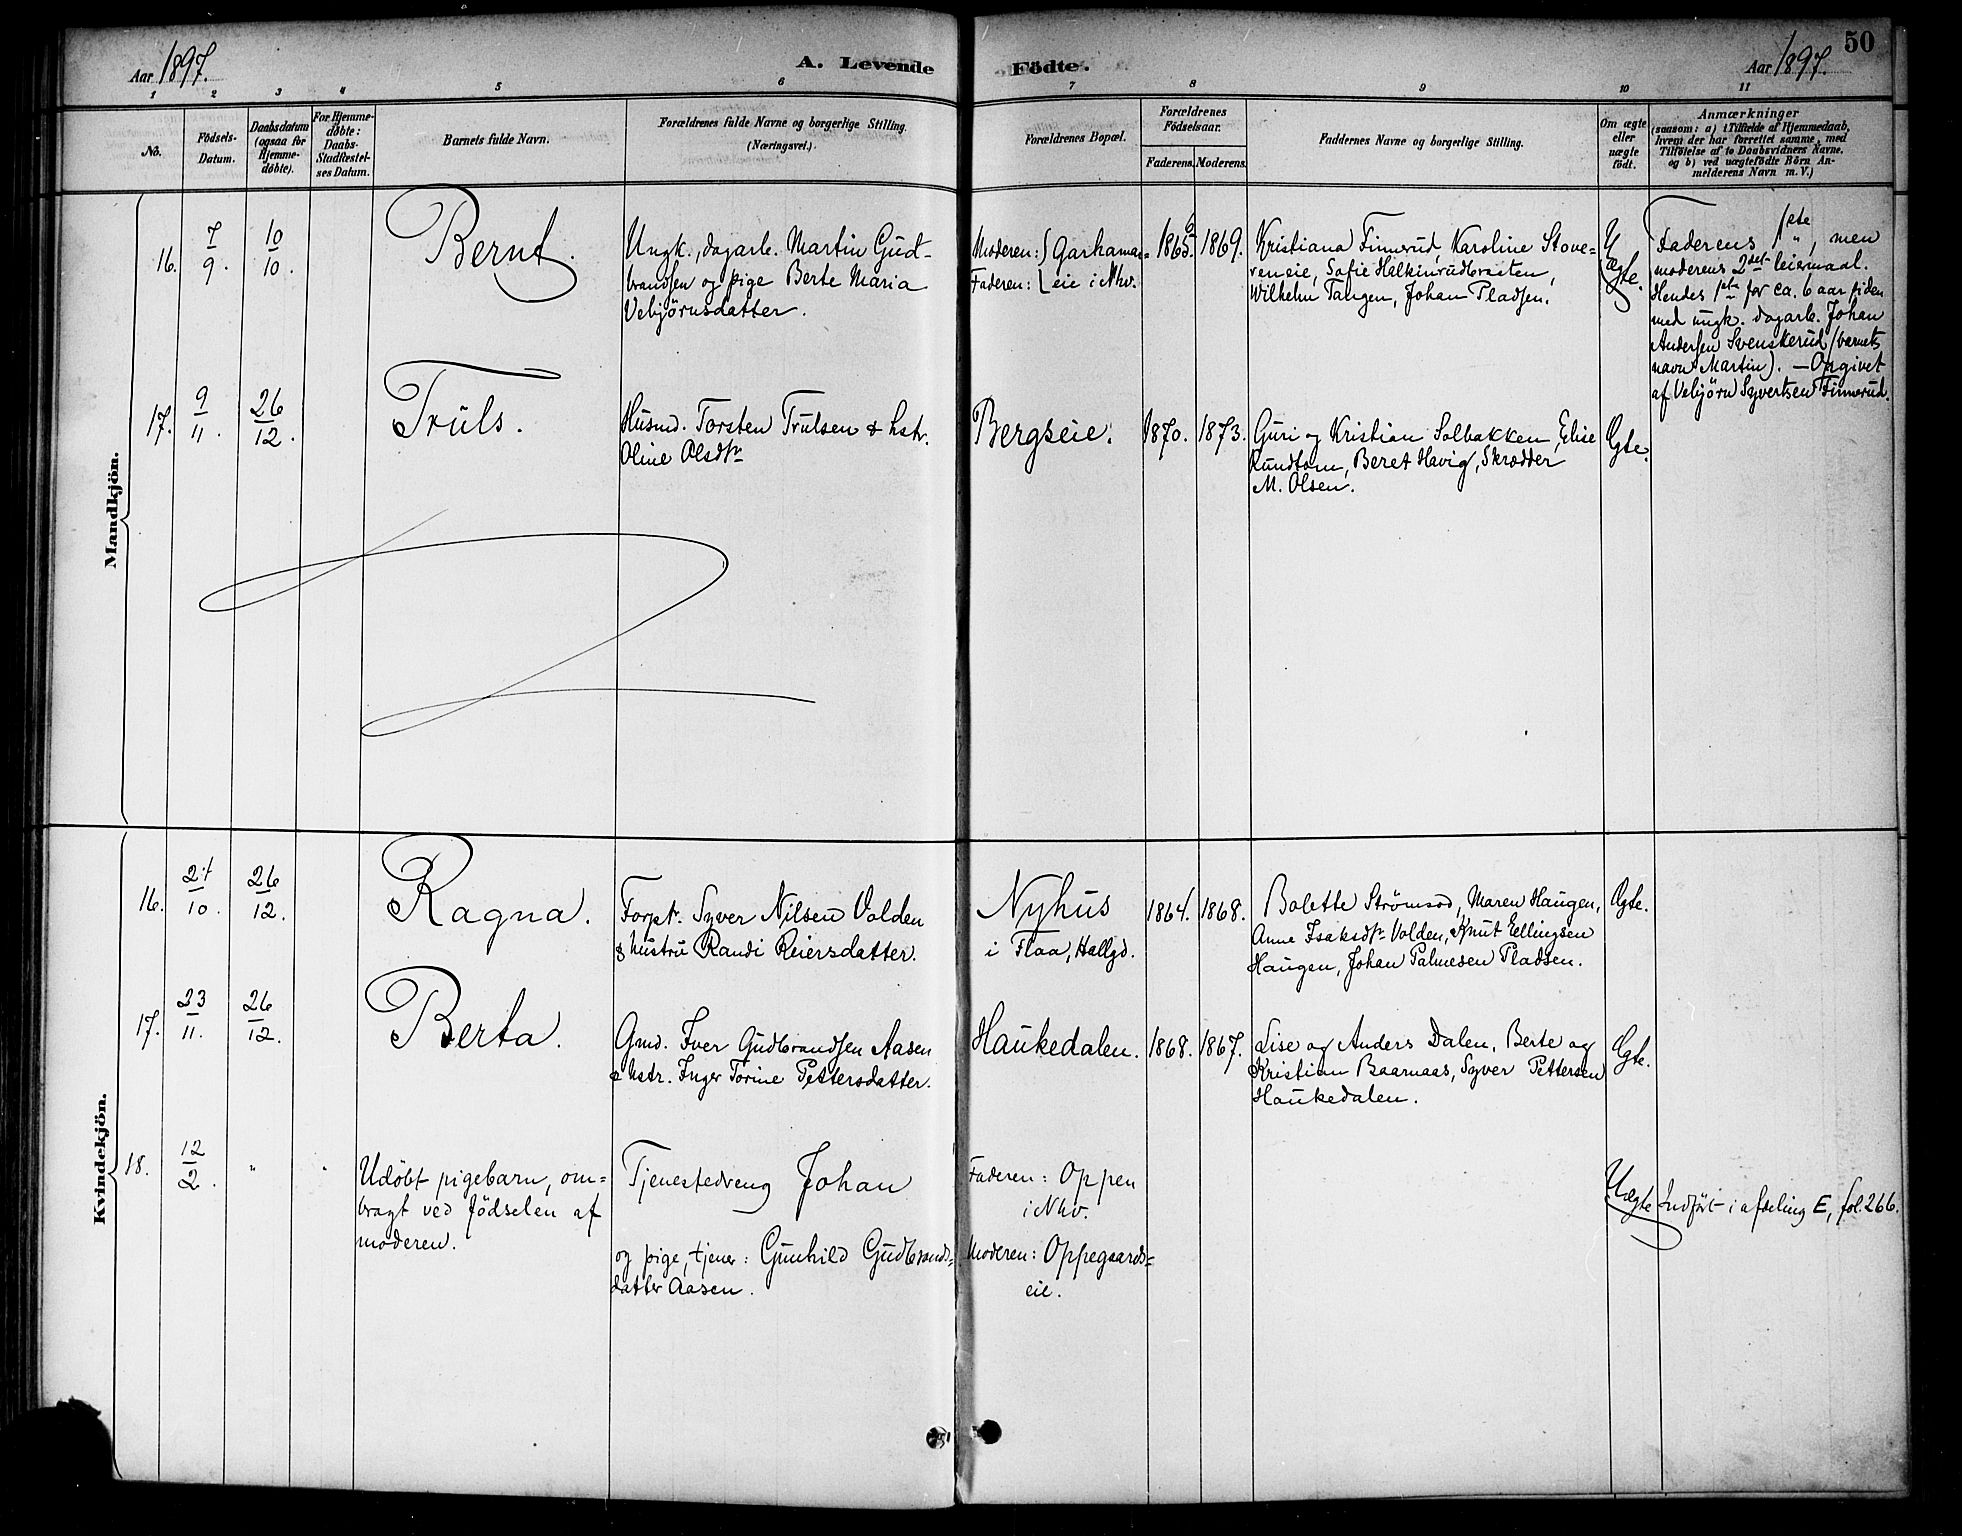 50
Aar 1897.
A. Levende Födte.
Aar 1897.
1 2 3 4 5 6 7 8 9 10 11
No.
Födsels-
Datum.
Daabsdatum
(ogsaa for
Hjemme-
døbte).
For Hjemme-
døbte:
Daabs-
Stadfæstel-
ses Datum.
Barnets fulde Navn.
Forældrenes fulde Navne og borgerlige Stilling.
(Næringsvei.)
Forældrenes Bopæl.
Forældrenes
Födselsaar.
Faderens. Moderens.
Faddernes Navne og borgerlige Stilling.
Om ægte
eller
uægte
født.
Anmærkninger
(saasom: a) i Tilfælde af Hjemmedaab,
hvem der har forrettet samme, med
Tilföielse af to Daabsvidners Navne.
og b) ved uægtefödte Börn An-
melderens Navn m. V.)
Mandkjön.
16.
7
9.
10
10.
Bernt.
Ungk., dagarb. Martin Gud-
brandsen og pige Berte Maria
Vebjörnsdatter.
Moderen: } Garhamar-
Faderen: { eie i Nhv.
1865.
1869.
Kristiana Finnerud, Karoline Stove-
reneie, Sofie Helkinrudbraaten,
Wilhelm Tangen, Johan Pladsen.
Uægte.
Faderens 1ste, men
moderens 2det leiermaal.
Hendes 1ste for ca. 6 aar siden
med ungk. dagarb. Johan
Andersen Svenskerud (barnets
navn Martin). — Opgivet
af Vebjörn Syvertsen Finnerud.
17.
9
11.
26
12.
Truls.
Husmd. Torsten Trulsen & hstr.
Oline Olsdtr
Bergseie.
1870.
1873.
Guri og Kristian Solbakken, Elise
Rundtom, Beret Havig, Skrædder
M. Olsen.
Ægte.
Kvindekjön.
16.
10.
26
12.
Ragna.
Forpt. Syver Nilsen Volden
& hustru Randi Reiersdatter.
Nyhus
i Flaa, Hallgd.
1864.
1868.
Bolette Strømsod, Maren Haugen,
Anne Isaksdtr Volden, Knut Ellingsen
Haugen, Johan Palmesen Pladsen.
Ægte.
17.
23
11.
26
12.
Berta.
Gmd. Iver Gudbrandsen Aasen
& hstr. Inger Torine Pettersdatter.
Haukedalen.
1868.
1867.
Lise og Anders Dalen, Berte og
Kristian Baarnaas, Syver Pettersen
Haukedalen.
Ægte.
18.
12
2.
"
"
Udöbt pigebarn, om-
bragt ved födselen af
moderen.
Tjenestedreng Johan
og pige, tjener: Gunhild Gudbrands-
datter Aasen.
Faderen: Oppen
i Nhv.
Moderen: Oppegaards-
eie.
Uægte
Indfört i afdeling E, fol. 266.